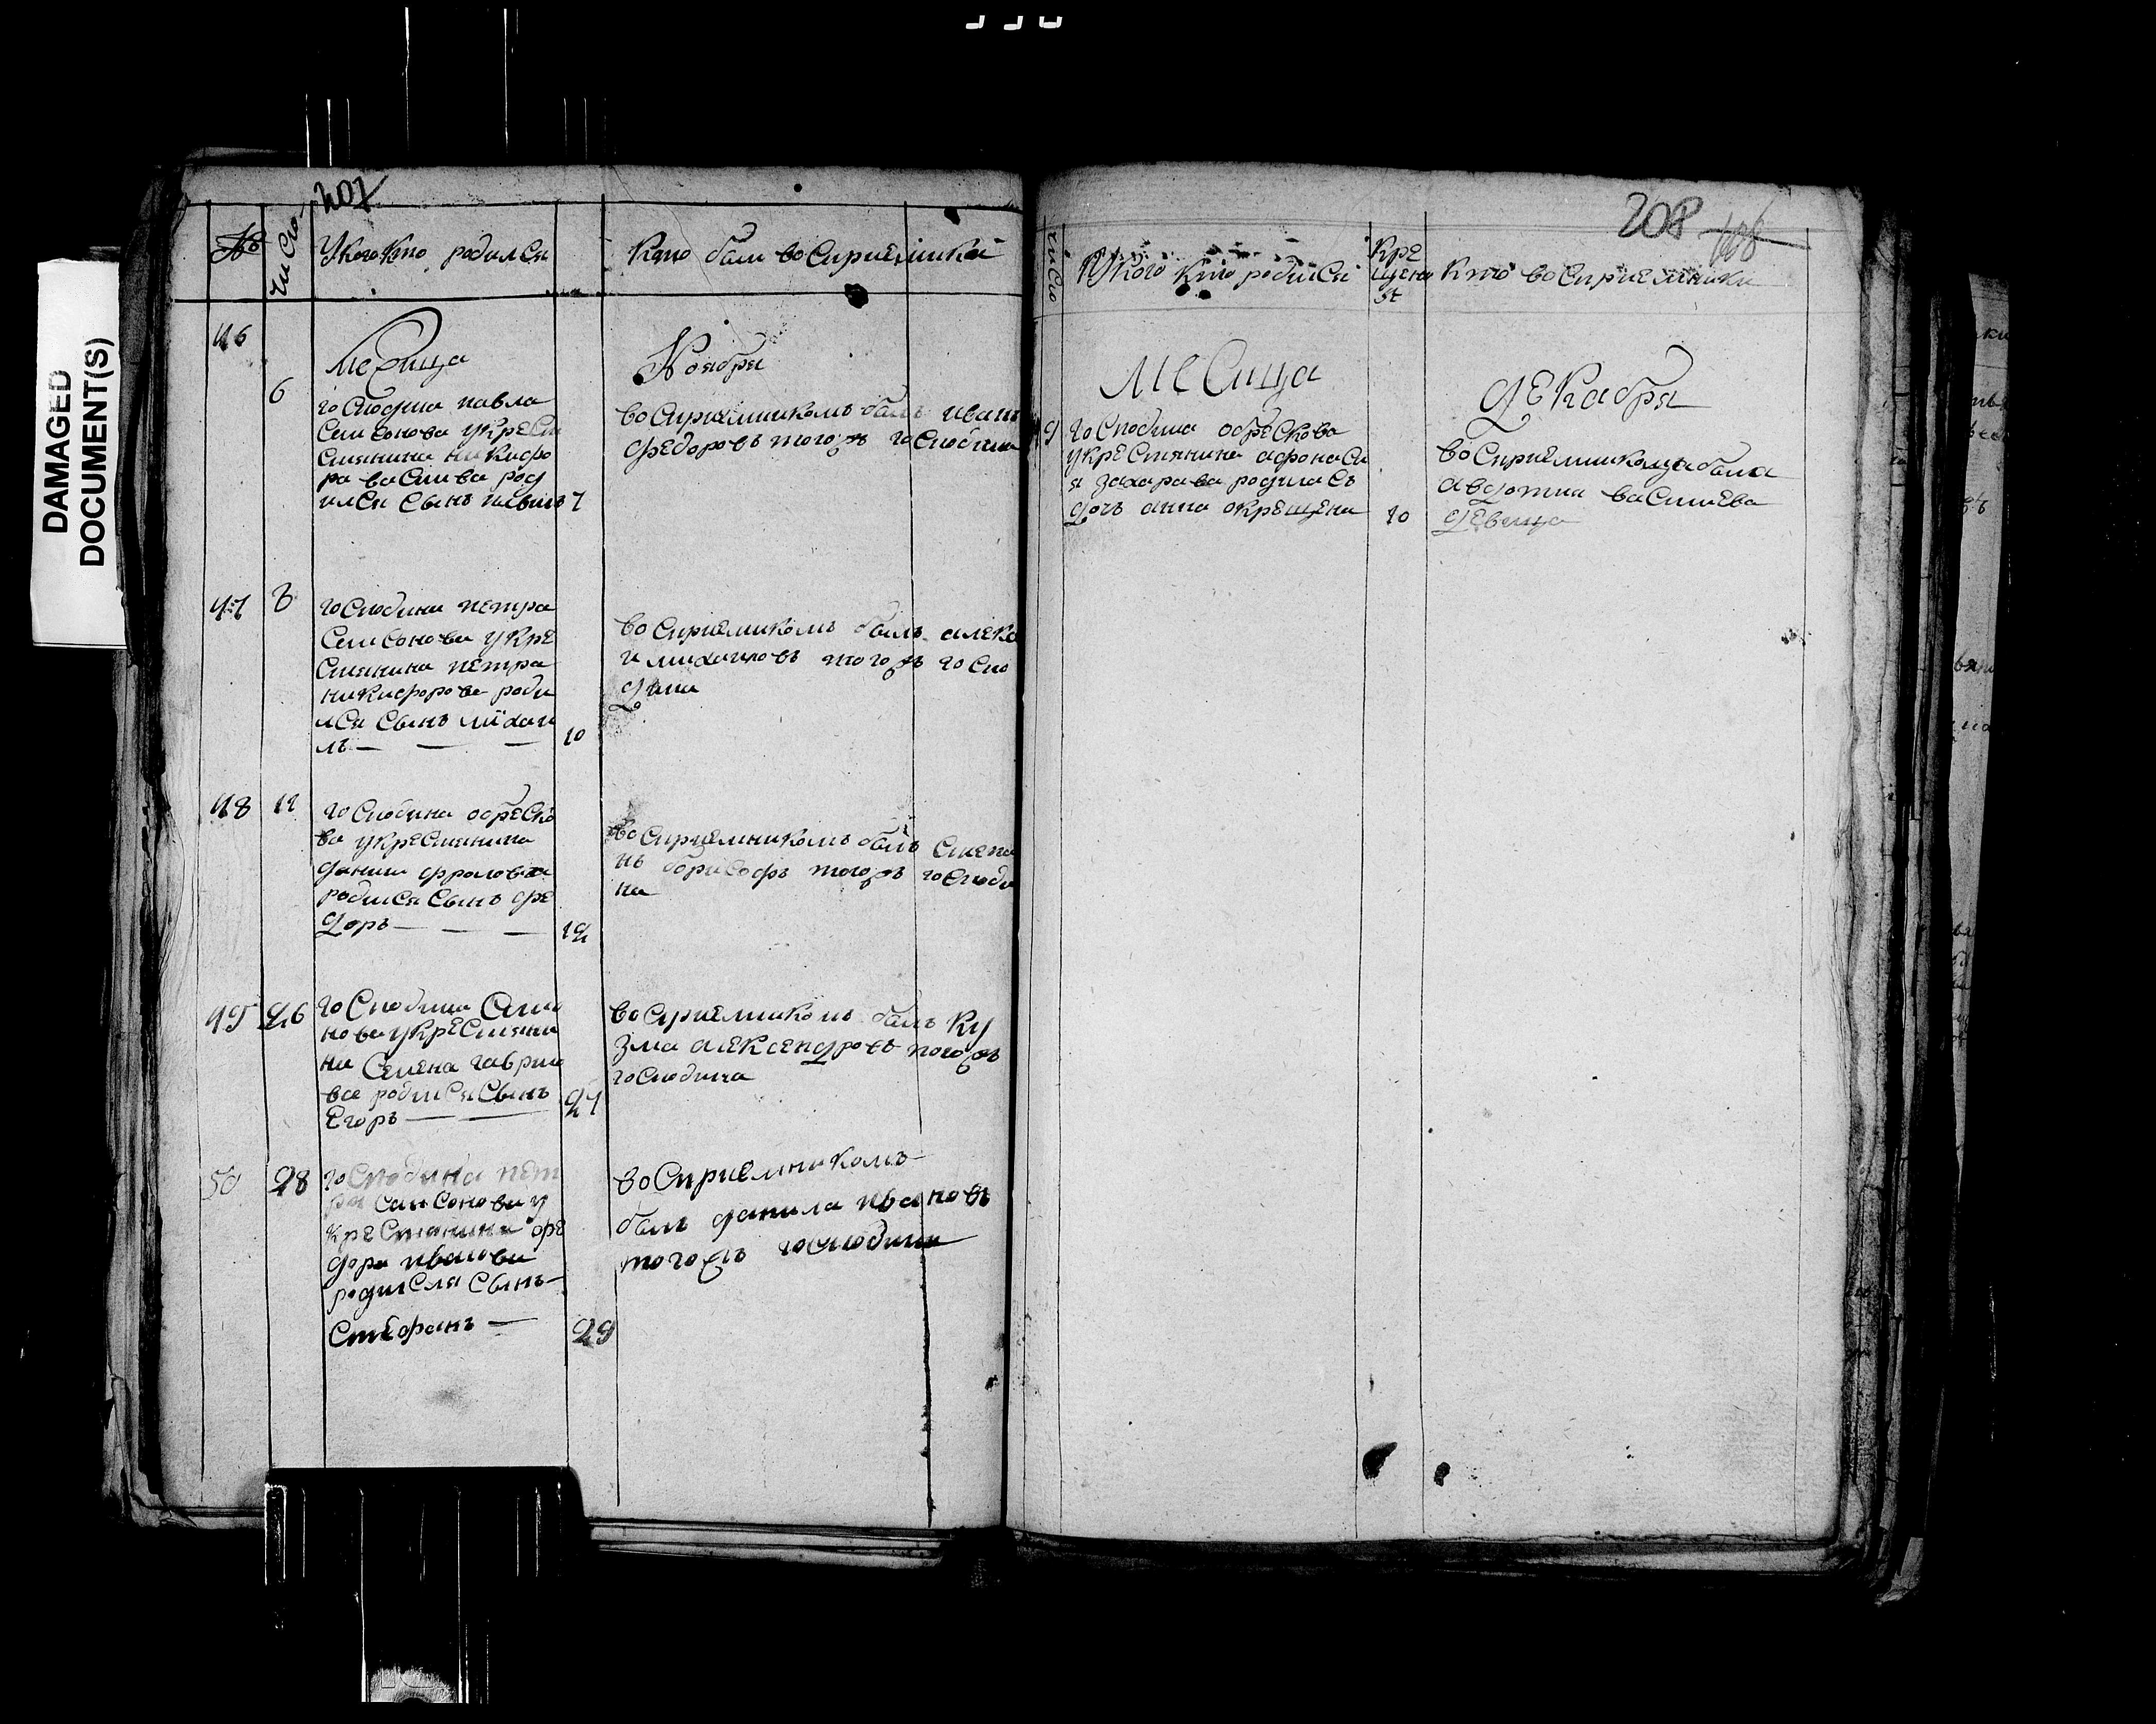 DAMAGED
DOCUMENT(S)
207
№
число
У кого кто родился
Кто был восприемникой
46
месица
Ноября
6
господина павла
самсонова у крест
стянина никифо
ра васильва род
ился сынъ павилъ 7
восприемникомъ былъ иванъ
федоровъ тогожъ господина
47
8
господина петра
самсонова у кре
стянина петра
никифорова роди
лся сынъ михаи
лъ — — — 10
восприемникомъ былъ алекс
и михаиловъ тогожъ госпо
дина
48
11
господина обреско
ва у крестянина
данилы фролова
родился сынъ фе
доръ — — — 12
восприемникомъ былъ степа
нъ борисофъ тогожъ господи
на
49
26
господина самсо
нова у крестяни
на семена гаврил
вае родился сынъ
Егоръ — — 27
восприемникомъ былъ ку
зма алексендровъ тогожъ
господина
50
28
господина пет
ра самсонова у
крестянина фе
дора иванова
родился сынъ —
стефанъ — 29
восприемникомъ
былъ данила ивановъ
тогожъ господина
208
число
У кого кто родился
Кре
щена
кто восприемники
месица
декабря
9
господина обрескова
у крестянина афонаси
я захарава родиласъ
дочъ анна окрещена 10
восприемникомъ была
авдотия василева
девица